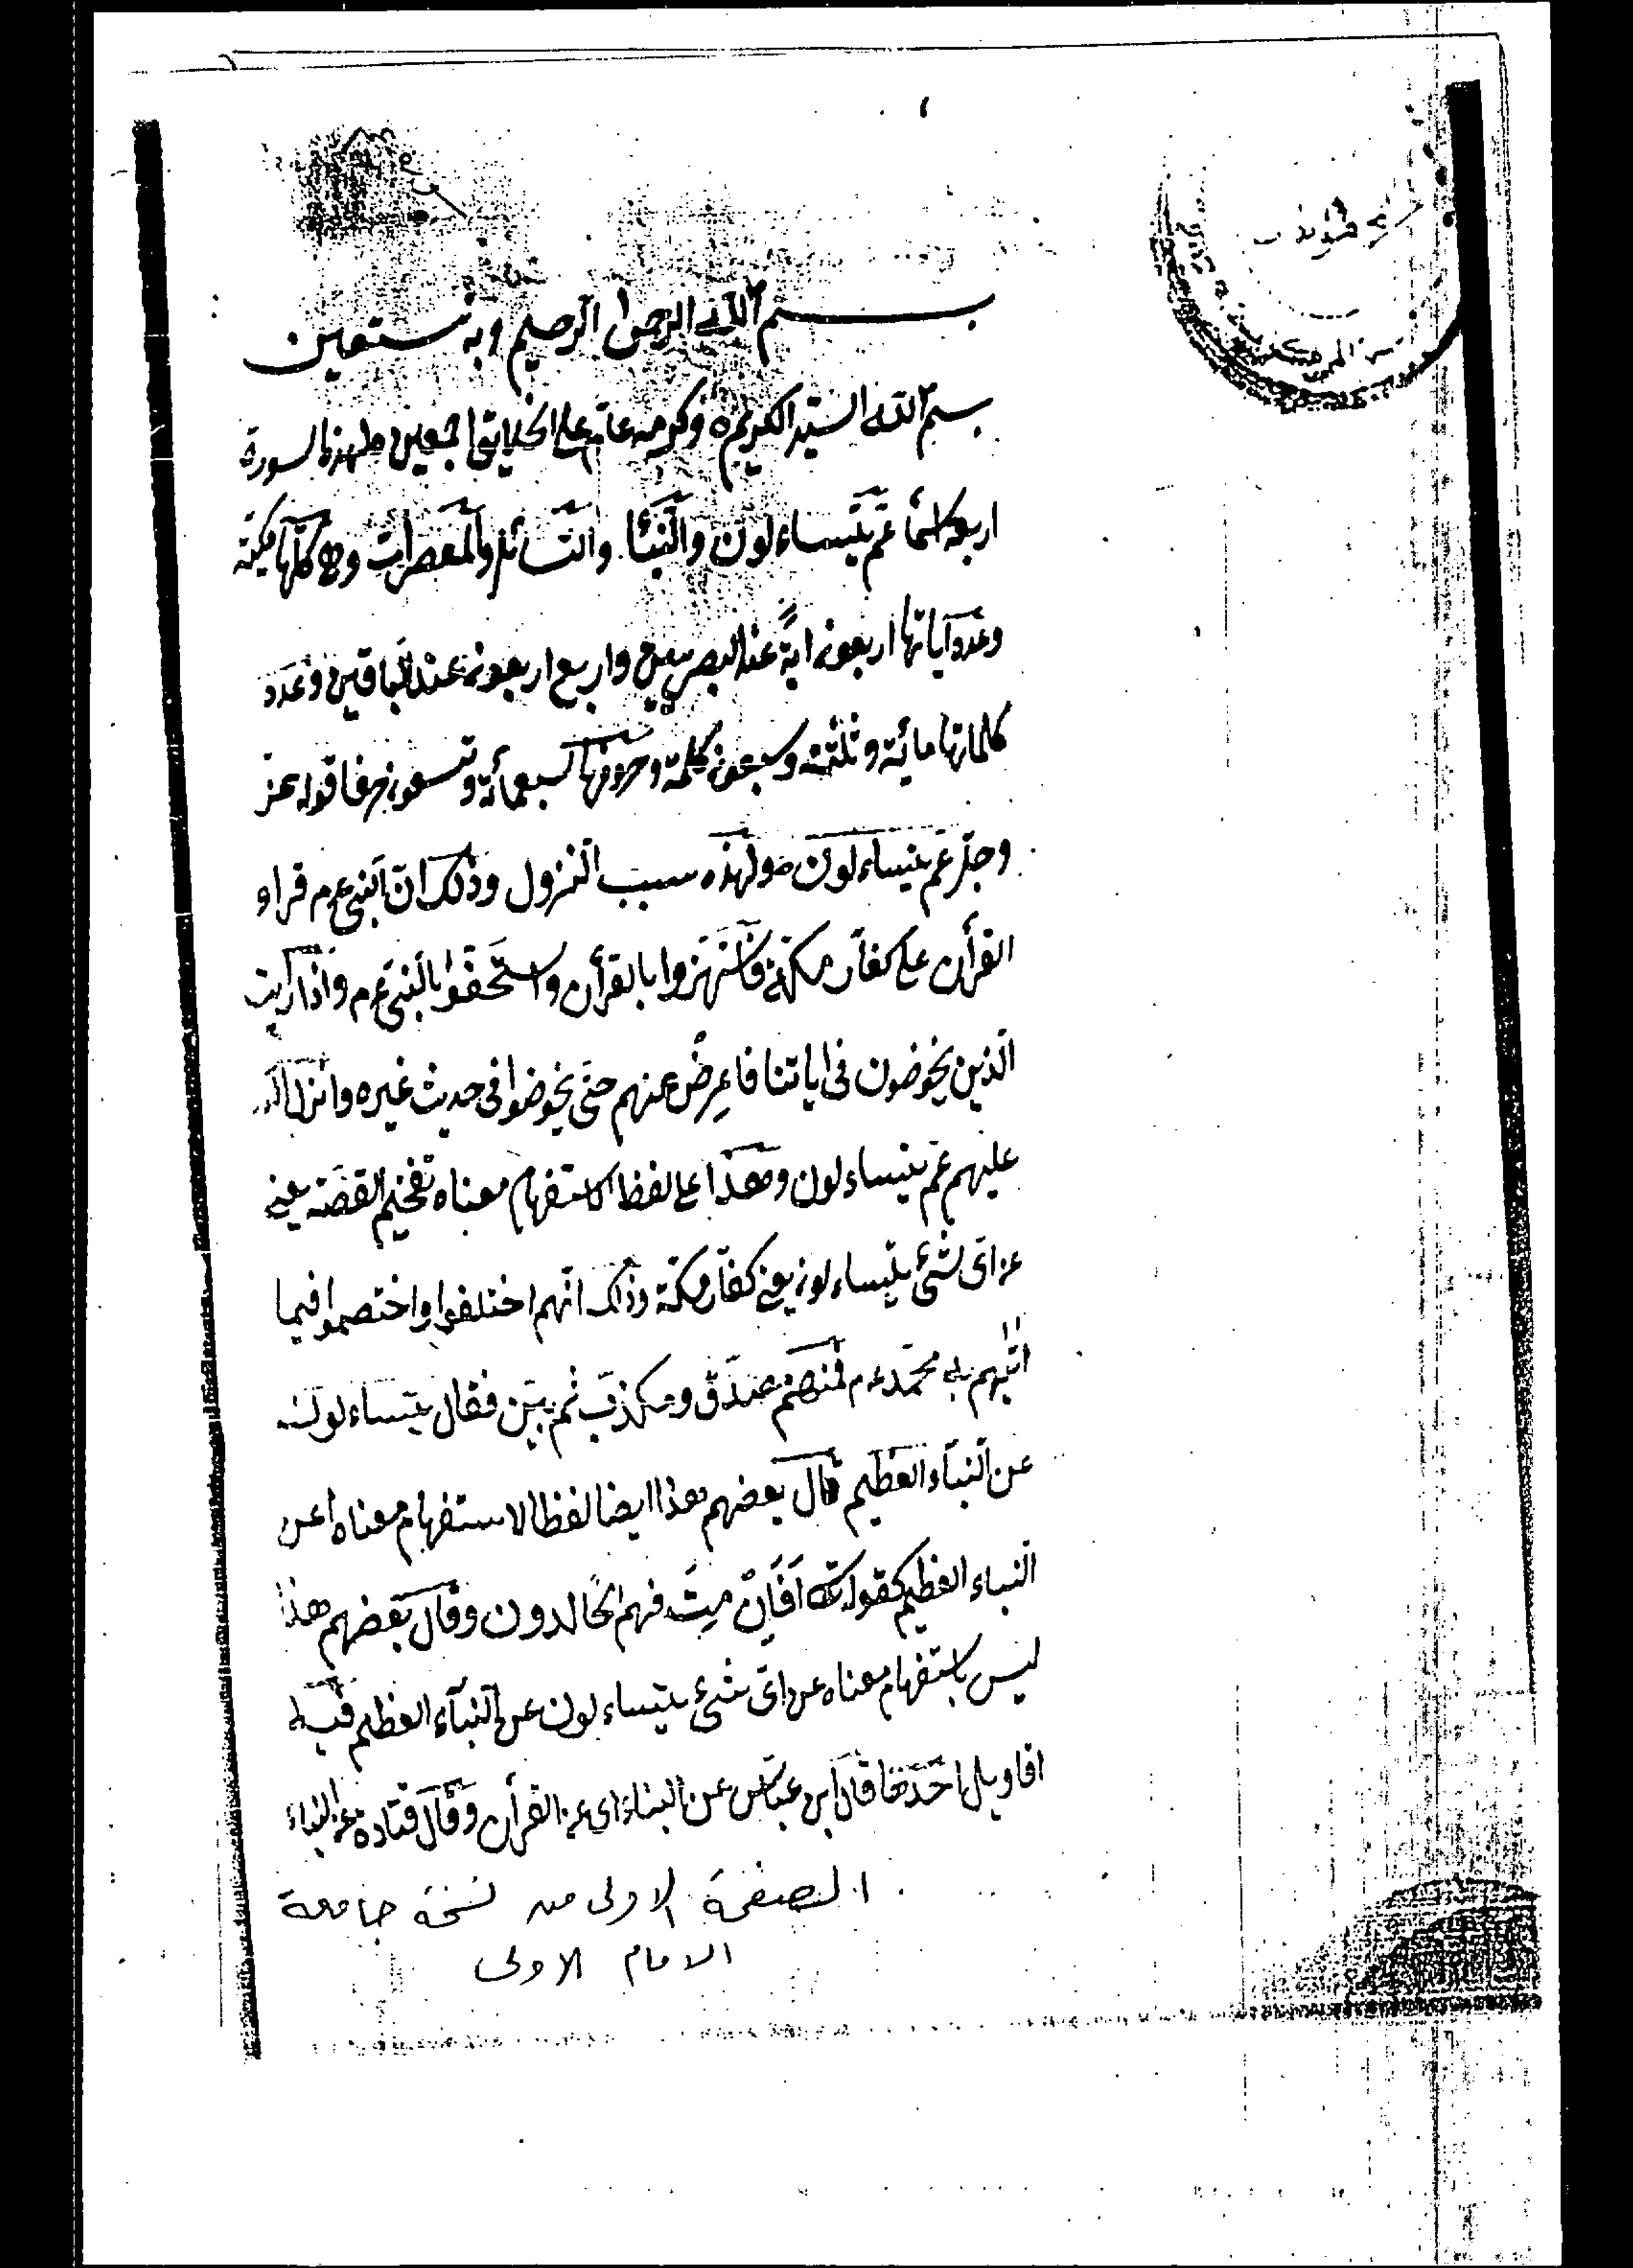 بسم الله الرحمن الرحيم وبه نستعين
بسم الله السيد الكريم وكرمه عام على الخلايق اجمعين لهذه السورة
اربعة اسماء عم يتساءلون والنبأ والتساؤل والمعصرات وهي كلها مكية
وعدد آياتها اربعون اية عند البصريين واربع اربعون عند الباقين وعدد
كلماتها مائية وثلثة وسبعون كلمة وحروفها سبعمائة وتسعون حرفا قوله عز
وجل عم يتساءلون ولهذه سبب النزول وذلك ان النبي عم قراء
القرأن على كفار مكة فاستهزوا بالقرأن واستخفوا بالنبي عم واذا رايت
الذين يخوضون فى اياتنا فاعرض عنهم حتى يخوضوا فى حديث غيره وانزل الله
عليهم عم يتساءلون وهذا على لفظ الاستفهام معناه تفخيم القصة يعنى
عن اى شئ يتساءلون يعنى كفار مكة وذلك انهم اختلفوا واختصموا فيما
اتيهم به محمد عم فمنهم مصدق ومكذب ثم بين فقال يتساءلون
عن النباء العظيم قال بعضهم هذا ايضا لفظ الاستفهام معناه اعن
النباء العظيم كقوله تعالى أفإن مت فهم الخالدون وقال بعضهم هذا
ليس باستفهام معناه عن اى شئ يتساءلون عن النباء العظيم فيه
اقاويل احدها قال ابن عباس عن النباء اى عن القرأن وقال قتادة عن النباء
الصفحة الاولى من نسخة جامعة
الامام الاولى